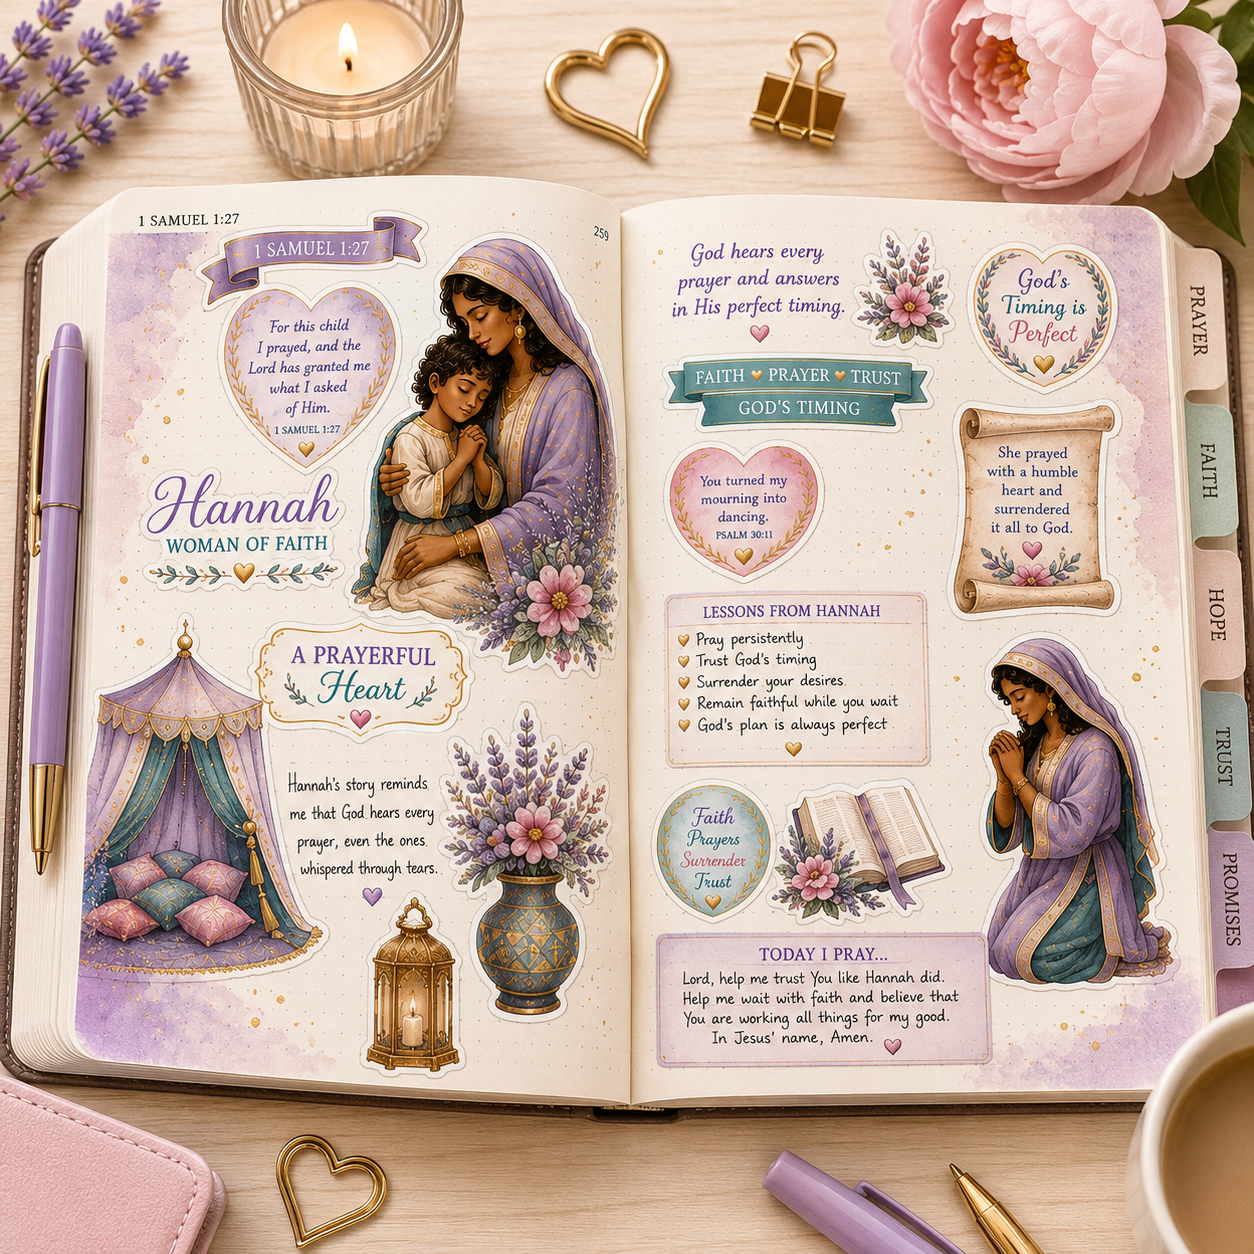 1 SAMUEL 1:27
259
1 SAMUEL 1:27
For this child
I prayed, and the
Lord has granted me
what I asked
of Him.
1 SAMUEL 1:27
Hannah
WOMAN OF FAITH
A PRAYERFUL
Heart
Hannah's story reminds
me that God hears every
prayer, even the ones
whispered through tears.
God hears every
prayer and answers
in His perfect timing.
God's
Timing is
Perfect
FAITH PRAYER TRUST
GOD'S TIMING
You turned my
mourning into
dancing.
PSALM 30:11
She prayed
with a humble
heart and
surrendered
it all to God.
LESSONS FROM HANNAH
Pray persistently
Trust God's timing
Surrender your desires
Remain faithful while you wait
God's plan is always perfect
Faith
Prayers
Surrender
Trust
TODAY I PRAY...
Lord, help me trust You like Hannah did.
Help me wait with faith and believe that
You are working all things for my good.
In Jesus' name, Amen.
PRAYER
FAITH
HOPE
TRUST
PROMISES